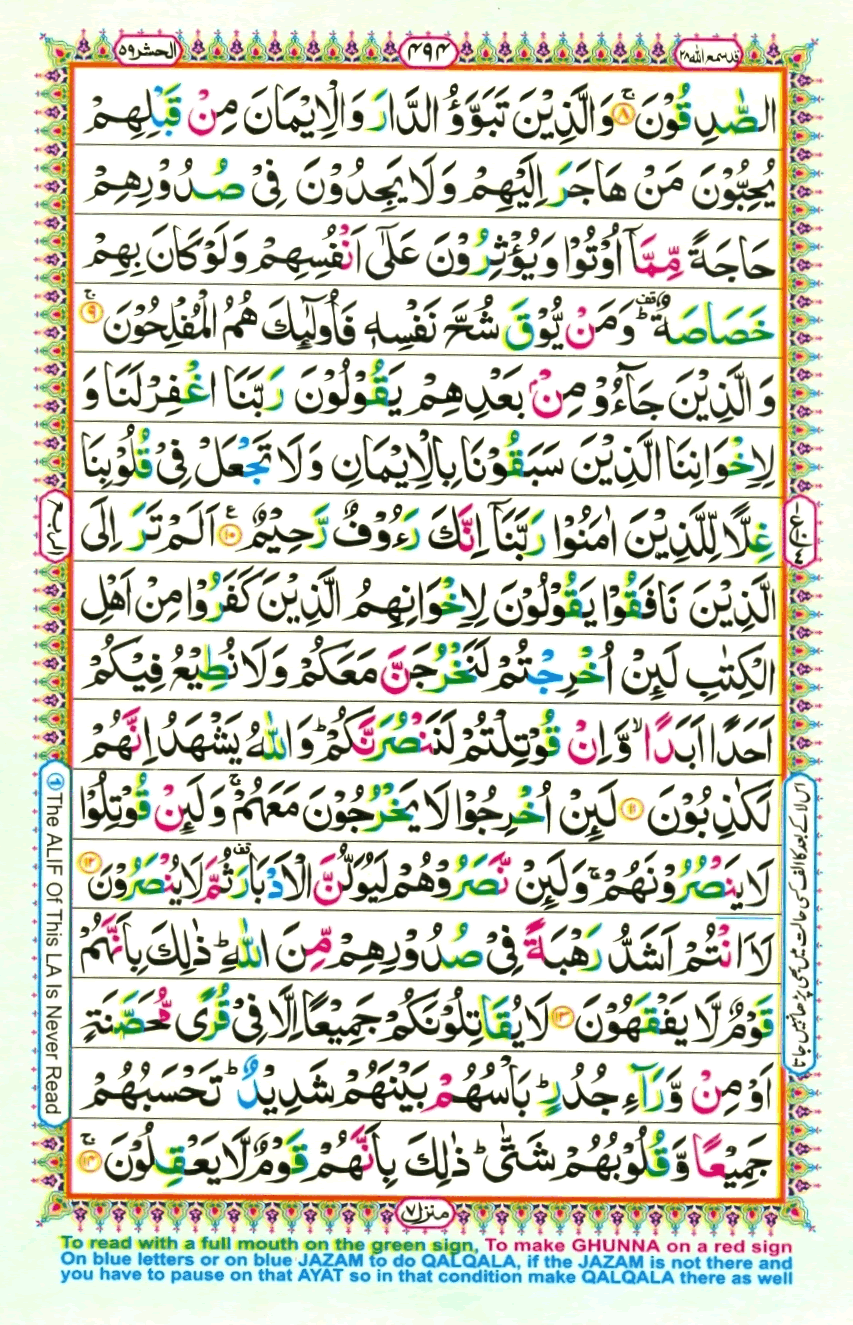 قد سمع الله ٢٨
٤٩٤
الحشر ٥٩
الصّٰدِقُوْنَ ۚ﴿۸﴾ وَالَّذِيْنَ تَبَوَّؤُ الدَّارَ وَالْاِيْمَانَ مِنْ قَبْلِهِمْ
يُحِبُّوْنَ مَنْ هَاجَرَ اِلَيْهِمْ وَلَا يَجِدُوْنَ فِيْ صُدُوْرِهِمْ
حَاجَةً مِّمَّاۤ اُوْتُوْا وَيُؤْثِرُوْنَ عَلٰۤى اَنْفُسِهِمْ وَلَوْ كَانَ بِهِمْ
خَصَاصَةٌ ؕ۫ وَمَنْ يُّوْقَ شُحَّ نَفْسِهٖ فَاُولٰٓئِكَ هُمُ الْمُفْلِحُوْنَ ۚ﴿۹﴾
وَالَّذِيْنَ جَآءُوْ مِنْۢ بَعْدِهِمْ يَقُوْلُوْنَ رَبَّنَا اغْفِرْ لَنَا وَ
لِاِخْوَانِنَا الَّذِيْنَ سَبَقُوْنَا بِالْاِيْمَانِ وَلَا تَجْعَلْ فِيْ قُلُوْبِنَا
غِلًّا لِّلَّذِيْنَ اٰمَنُوْا رَبَّنَاۤ اِنَّكَ رَءُوْفٌ رَّحِيْمٌ ﴿۱۰﴾ ع اَلَمْ تَرَ اِلَى
الَّذِيْنَ نَافَقُوْا يَقُوْلُوْنَ لِاِخْوَانِهِمُ الَّذِيْنَ كَفَرُوْا مِنْ اَهْلِ
الْكِتٰبِ لَئِنْ اُخْرِجْتُمْ لَنَخْرُجَنَّ مَعَكُمْ وَلَا نُطِيْعُ فِيْكُمْ
اَحَدًا اَبَدًا ۙ وَّاِنْ قُوْتِلْتُمْ لَنَنْصُرَنَّكُمْ ؕ وَاللّٰهُ يَشْهَدُ اِنَّهُمْ
لَكٰذِبُوْنَ ﴿۱۱﴾ لَئِنْ اُخْرِجُوْا لَا يَخْرُجُوْنَ مَعَهُمْ ۚ وَلَئِنْ قُوْتِلُوْا
لَا يَنْصُرُوْنَهُمْ ۚ وَلَئِنْ نَّصَرُوْهُمْ لَيُوَلُّنَّ الْاَدْبَارَ ۫ ثُمَّ لَا يُنْصَرُوْنَ ﴿۱۲﴾
لَاَ انْتُمْ اَشَدُّ رَهْبَةً فِيْ صُدُوْرِهِمْ مِّنَ اللّٰهِ ؕ ذٰلِكَ بِاَنَّهُمْ
قَوْمٌ لَّا يَفْقَهُوْنَ ﴿۱۳﴾ لَا يُقَاتِلُوْنَكُمْ جَمِيْعًا اِلَّا فِيْ قُرًى مُّحَصَّنَةٍ
اَوْ مِنْ وَّرَآءِ جُدُرٍ ؕ بَاْسُهُمْ بَيْنَهُمْ شَدِيْدٌ ؕ تَحْسَبُهُمْ
جَمِيْعًا وَّقُلُوْبُهُمْ شَتّٰى ؕ ذٰلِكَ بِاَنَّهُمْ قَوْمٌ لَّا يَعْقِلُوْنَ ۚ﴿۱۴﴾
الربع
اس لا کے بعد کا الف کسی حالت میں بھی پڑھا نہیں جاتا
① The ALIF Of This LA Is Never Read
منزل ٧
To read with a full mouth on the green sign, To make GHUNNA on a red sign
On blue letters or on blue JAZAM to do QALQALA, if the JAZAM is not there and
you have to pause on that AYAT so in that condition make QALQALA there as well